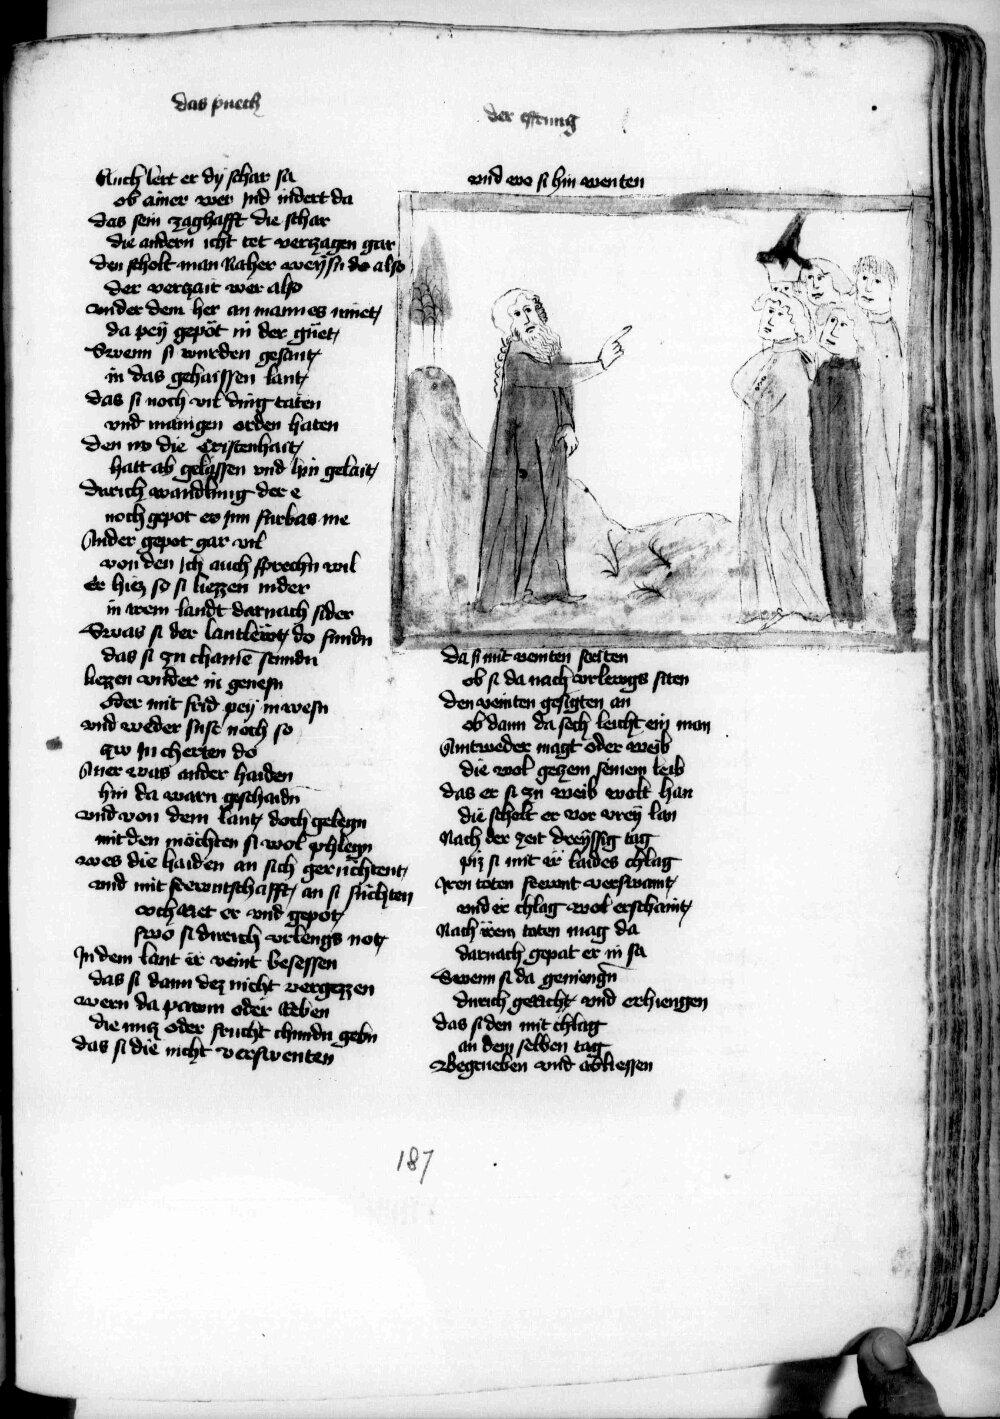 das puech
der ... 
Auch lert er dy schar sa
ob ainer wer Ind indert da
das sein zaghafft die schar
die andern icht tet verzagen gar
den scholt man Raher weysn do also
der verzait wer also
vnder dem her an mannes muet
da pey gepot in der guet
Swenn si wurden gesant
in das gehaissen lant
das si noch vil ding taten
vnd manigen orden haten
den nv die Cristenhait
hatt ab gelassen vnd hin gelait
durich wandlung der e
noch gepot er Inn furbas me
Ander gepot gar vil
von den Ich auch sprechn wil
Er hiez so si liezzen nider
in irem landt darnach sider
Swas si der lantlewt do fundn
das si zu chanie stundn
liezzen vnder in genesn
oder mit frid pey in wesn
vnd weder suse noch so
zw In cherten do
Aver was ander haiden
hin da warn geschaidn
vnd von dem lant doch gelegn
mit den möchten si wol phlegn
wes die haiden an sich geruchtent
vnd mit frewntschafft an si suchten
och Riet er vnd gepot
swo si durich vrlewgs not
In dem lant ir veint besessen
das si dann dez nicht vergezzen
wern da pawm oder Reben
die nucz oder frucht chundn gebn
das si die nicht verswenten
vnd wo si hin wenten
Da si mit veinten solten
ob si da nach vrlewgs siten
den veinten gesigten an
ob dann da sech leicht ein man
Aintweder magt oder weib
die wol gezem seinem leib
das er si zu weib wolt han
die scholt er vor vrey lan
Nach der zeit dreyssig tag
piz si mit ir laides chlag
Iren toten frewnt verswant
vnd ir chlag wol erschaint
Nach irem toten mag da
darnach gepat er in sa
Swenn si da geuiengn
durich gericht vnd erhiengen
das si den mit chlag
an dem selben tag
Begrueben vnd abliessen
187